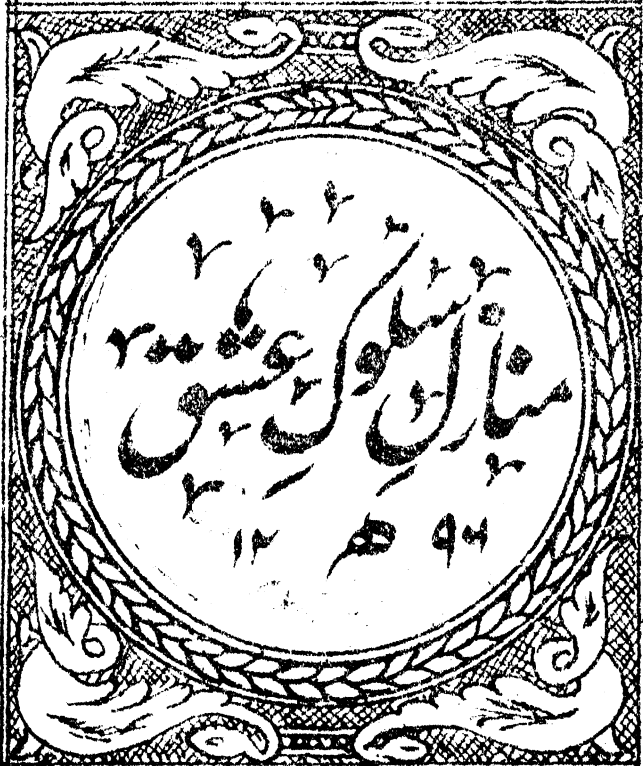 منازلِ سلوکِ عشق
۱۲ ھ ۹۴